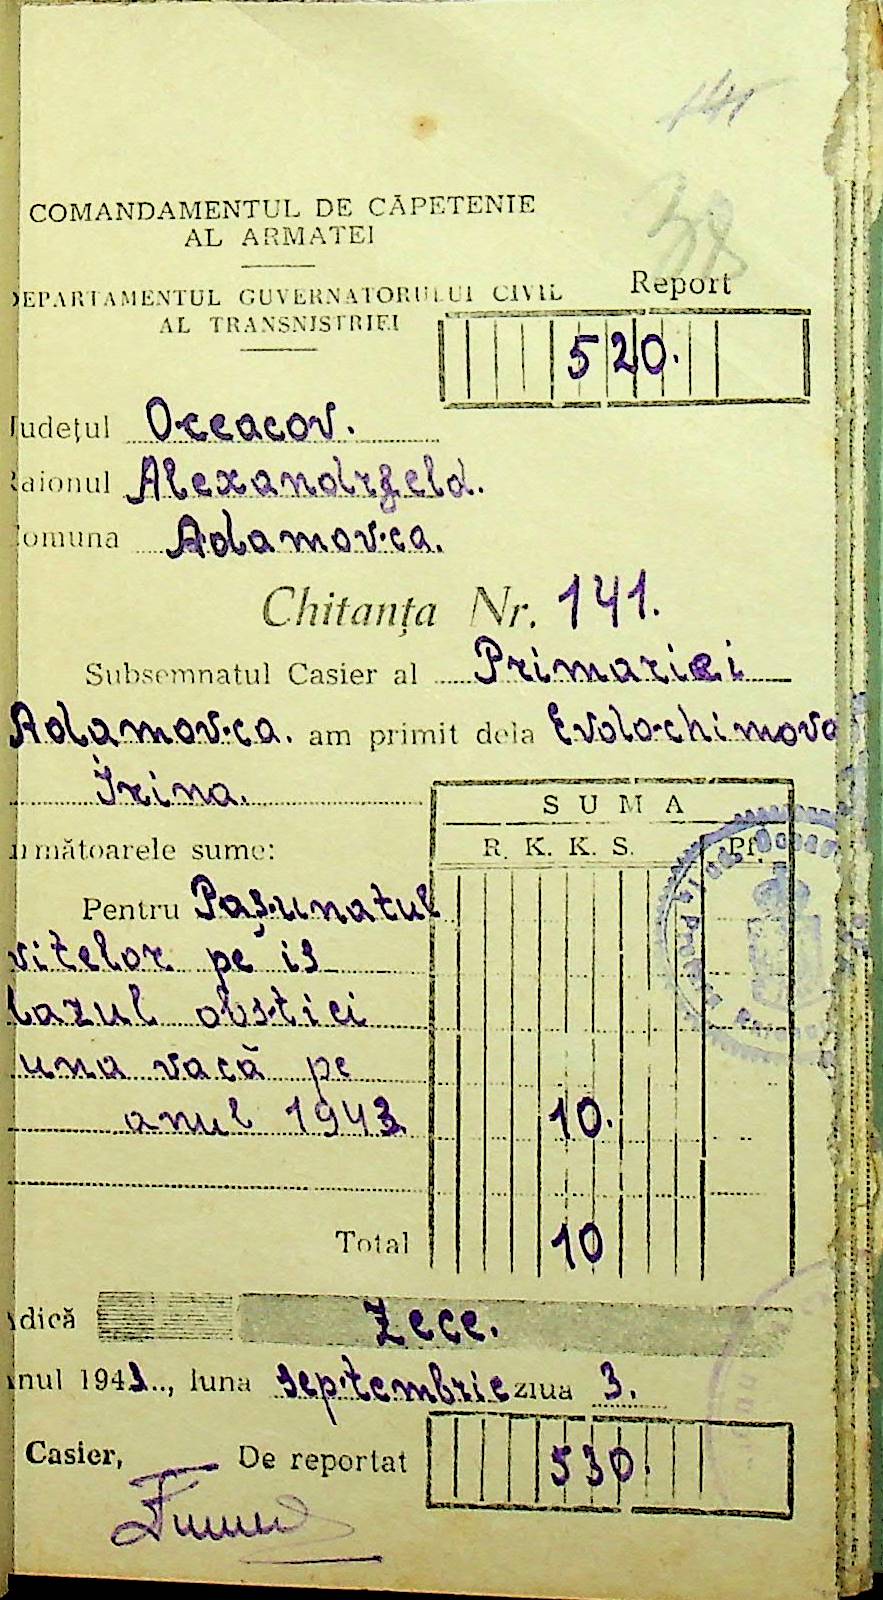 141
38
COMANDAMENTUL DE CĂPETENIE
AL ARMATEI
DEPARTAMENTUL GUVERNATORULUI CIVIL
AL TRANSNISTRIEI
Report
520.
Județul Oceacov.
Raionul Alexandrfeld.
Comuna Adamovca.
Chitanța Nr. 141.
Subsemnatul Casier al Primariei
Adamovca. am primit dela Evdochimova
Irina.
SUMA
următoarele sume:
R. K. K. S. Pf.
Pentru Pașunatul
vitelor pe is
lazul obstiei
una vacă pe
anul 1943 10.
Total 10
Adică Zece.
Anul 1943.., luna septembrie ziua 3.
Casier, De reportat 530.